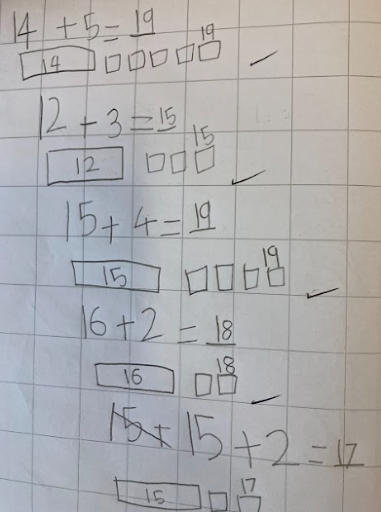 14 + 5 = 19
14 19
12 + 3 = 15
12 15
15 + 4 = 19
15 19
16 + 2 = 18
16 18
15 + 15 + 2 = 17
15 17